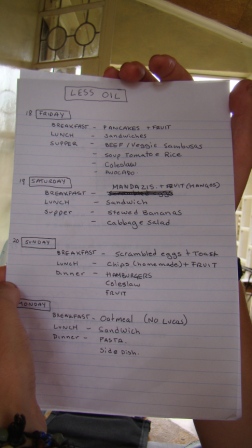 LESS OIL
18 FRIDAY
BREAKFAST - PANCAKES + FRUIT
LUNCH - Sandwiches
SUPPER - BEEF / Veggie Sambusas
- Soup Tomato + Rice
- Coleslaw
- Avocado
19 SATURDAY
BREAKFAST - MANDAZIS + FRUIT (MANGOES)
LUNCH - Sandwich
Supper - STEWED Bananas
- Cabbage Salad
20 SUNDAY
BREAKFAST - Scrambled eggs + Toast
LUNCH - Chips (homemade) + FRUIT
Dinner - HAMBURGERS
Coleslaw
FRUIT
MONDAY
BREAKFAST - Oatmeal (NO
LUNCH - Sandwich
Dinner - PASTA
Side Dish.